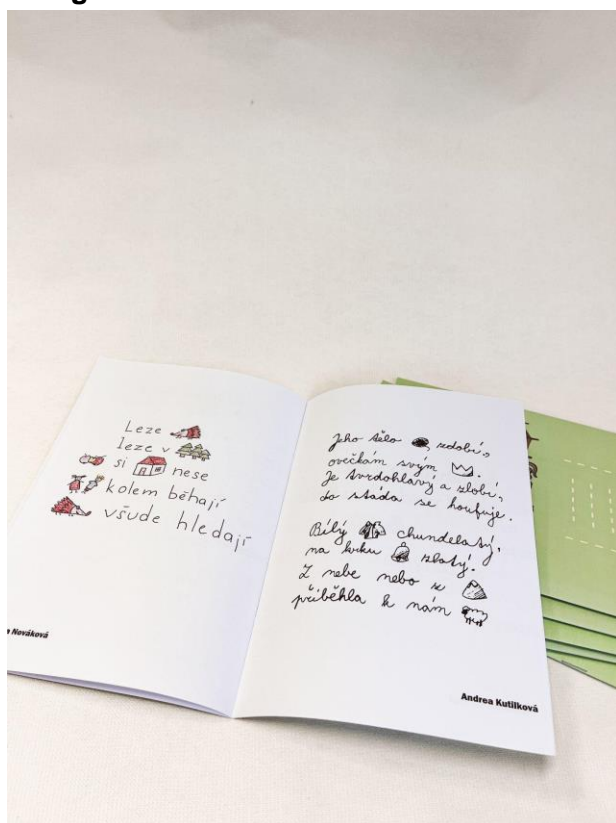 Leze
leze v
si nese
kolem běhají
všude hledají
Nováková
Jeho tělo zdobí,
ovečkám svým .
Je tvrdohlavý a zlobí,
do stáda se houfuje.
Bílý chundelatý,
na krku zlatý.
Z nebe nebo z
přiběhla k nám
Andrea Kutilková